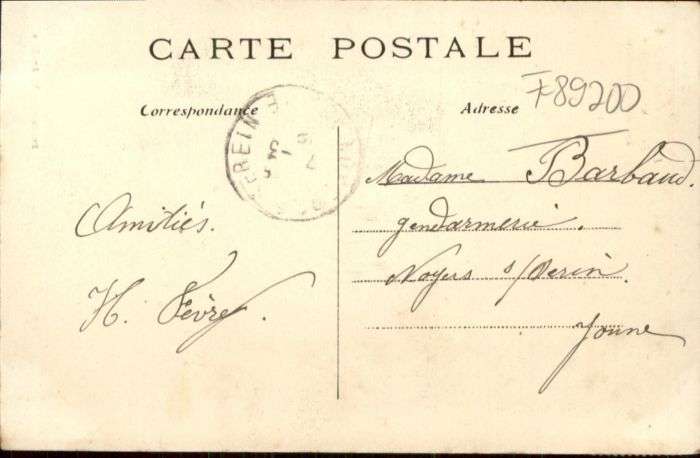 CARTE POSTALE
Correspondance
Adresse
F89200
Madame Barbaud.
gendarmerie.
Noyers s/Serin.
Yonne
Amitiés.
H. Fèvre.